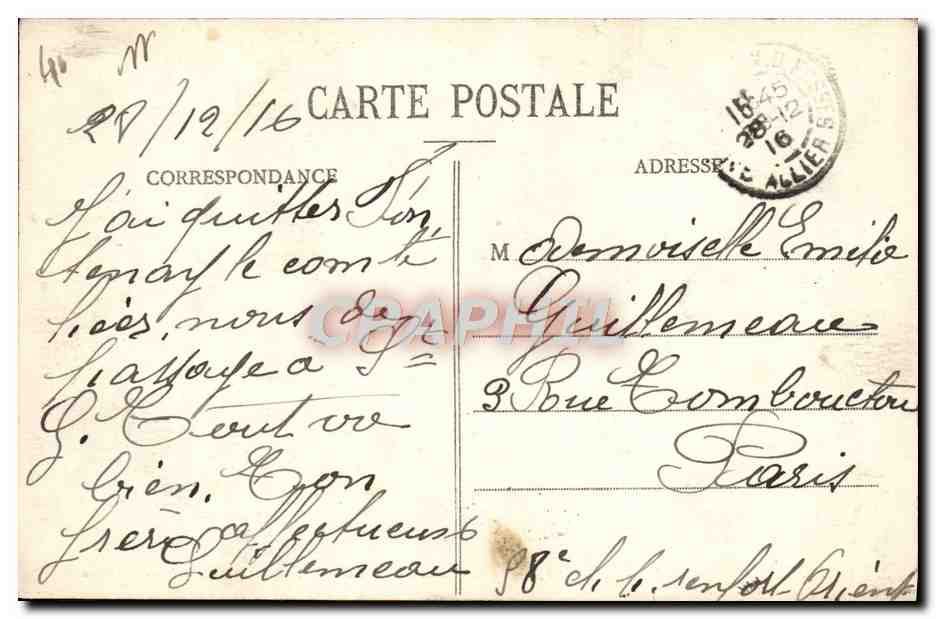 28/12/16
CARTE POSTALE
CORRESPONDANCE
ADRESSE
J'ai quitter Fon
tenay le comte
hier, nous de
passage a St
G. Tout va
bien. Ton
frère affectueux
Guillemeau
Mademoiselle Emilie
Guillemeau
3 Rue Tombouctou
Paris
98e renfort Orient
15 45
28-12
16
ALLIER
CPAPHIL